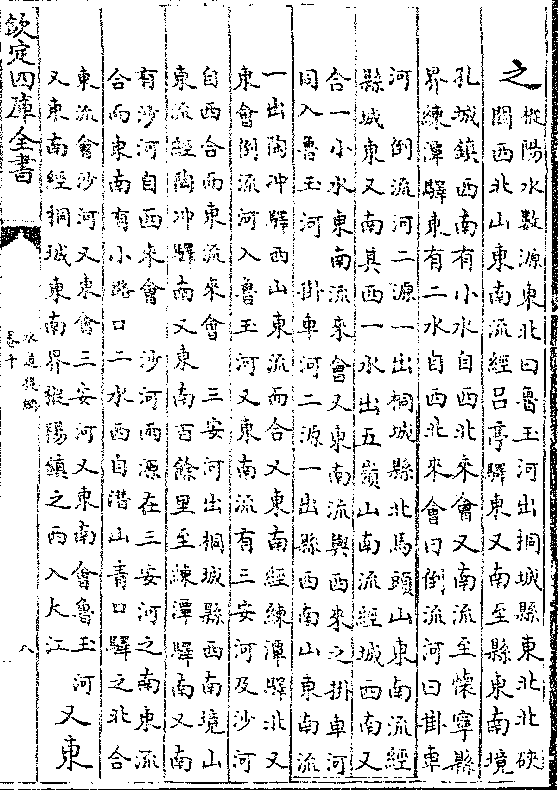 之樅陽水數源東北曰魯玉河出桐城縣東北北硤
關西北山東南流經呂亭驛東又南至縣東南境
孔城鎮西南有小水自西北來會又南流至懷寧縣
界練潭驛東有二水自西北來會曰倒流河曰掛車
河 倒流河二源一出桐城縣北馬頭山東南流經
縣城東又南其西一水出五嶺山南流經城西南又
合一小水東南流來會又東南流與西來之掛車河
同入魯玉河 掛車河二源一出縣西南山東南流
一出陶冲驛西山東流而合又東南經練潭驛北又
東會倒流河入魯玉河又東南流有三安河及沙河
自西合而東流來會 三安河出桐城縣西南境山
東流經陶冲驛南又東南百餘里至練潭驛南又南
有沙河自西來會 沙河兩源在三安河之南東流
合而東南有小路口二水西自潛山青口驛之北合
東流會沙河又東會三安河又東南會魯玉河
又東南經桐城東南界樅陽鎮之西入大江
又東
欽定四庫全書
水道提綱
卷十
八